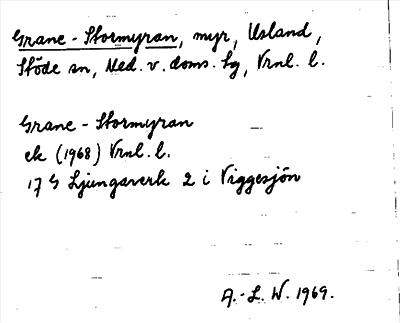 Grane-Stormyran, myr, Usland,
Stöde sn, Med. v. doms. tg, Vrnl. l.
Grane-Stormyran
ek (1968) Vrnl. l.
17 G Ljungaverk 2 i Viggesjön
A.-L. W. 1969.